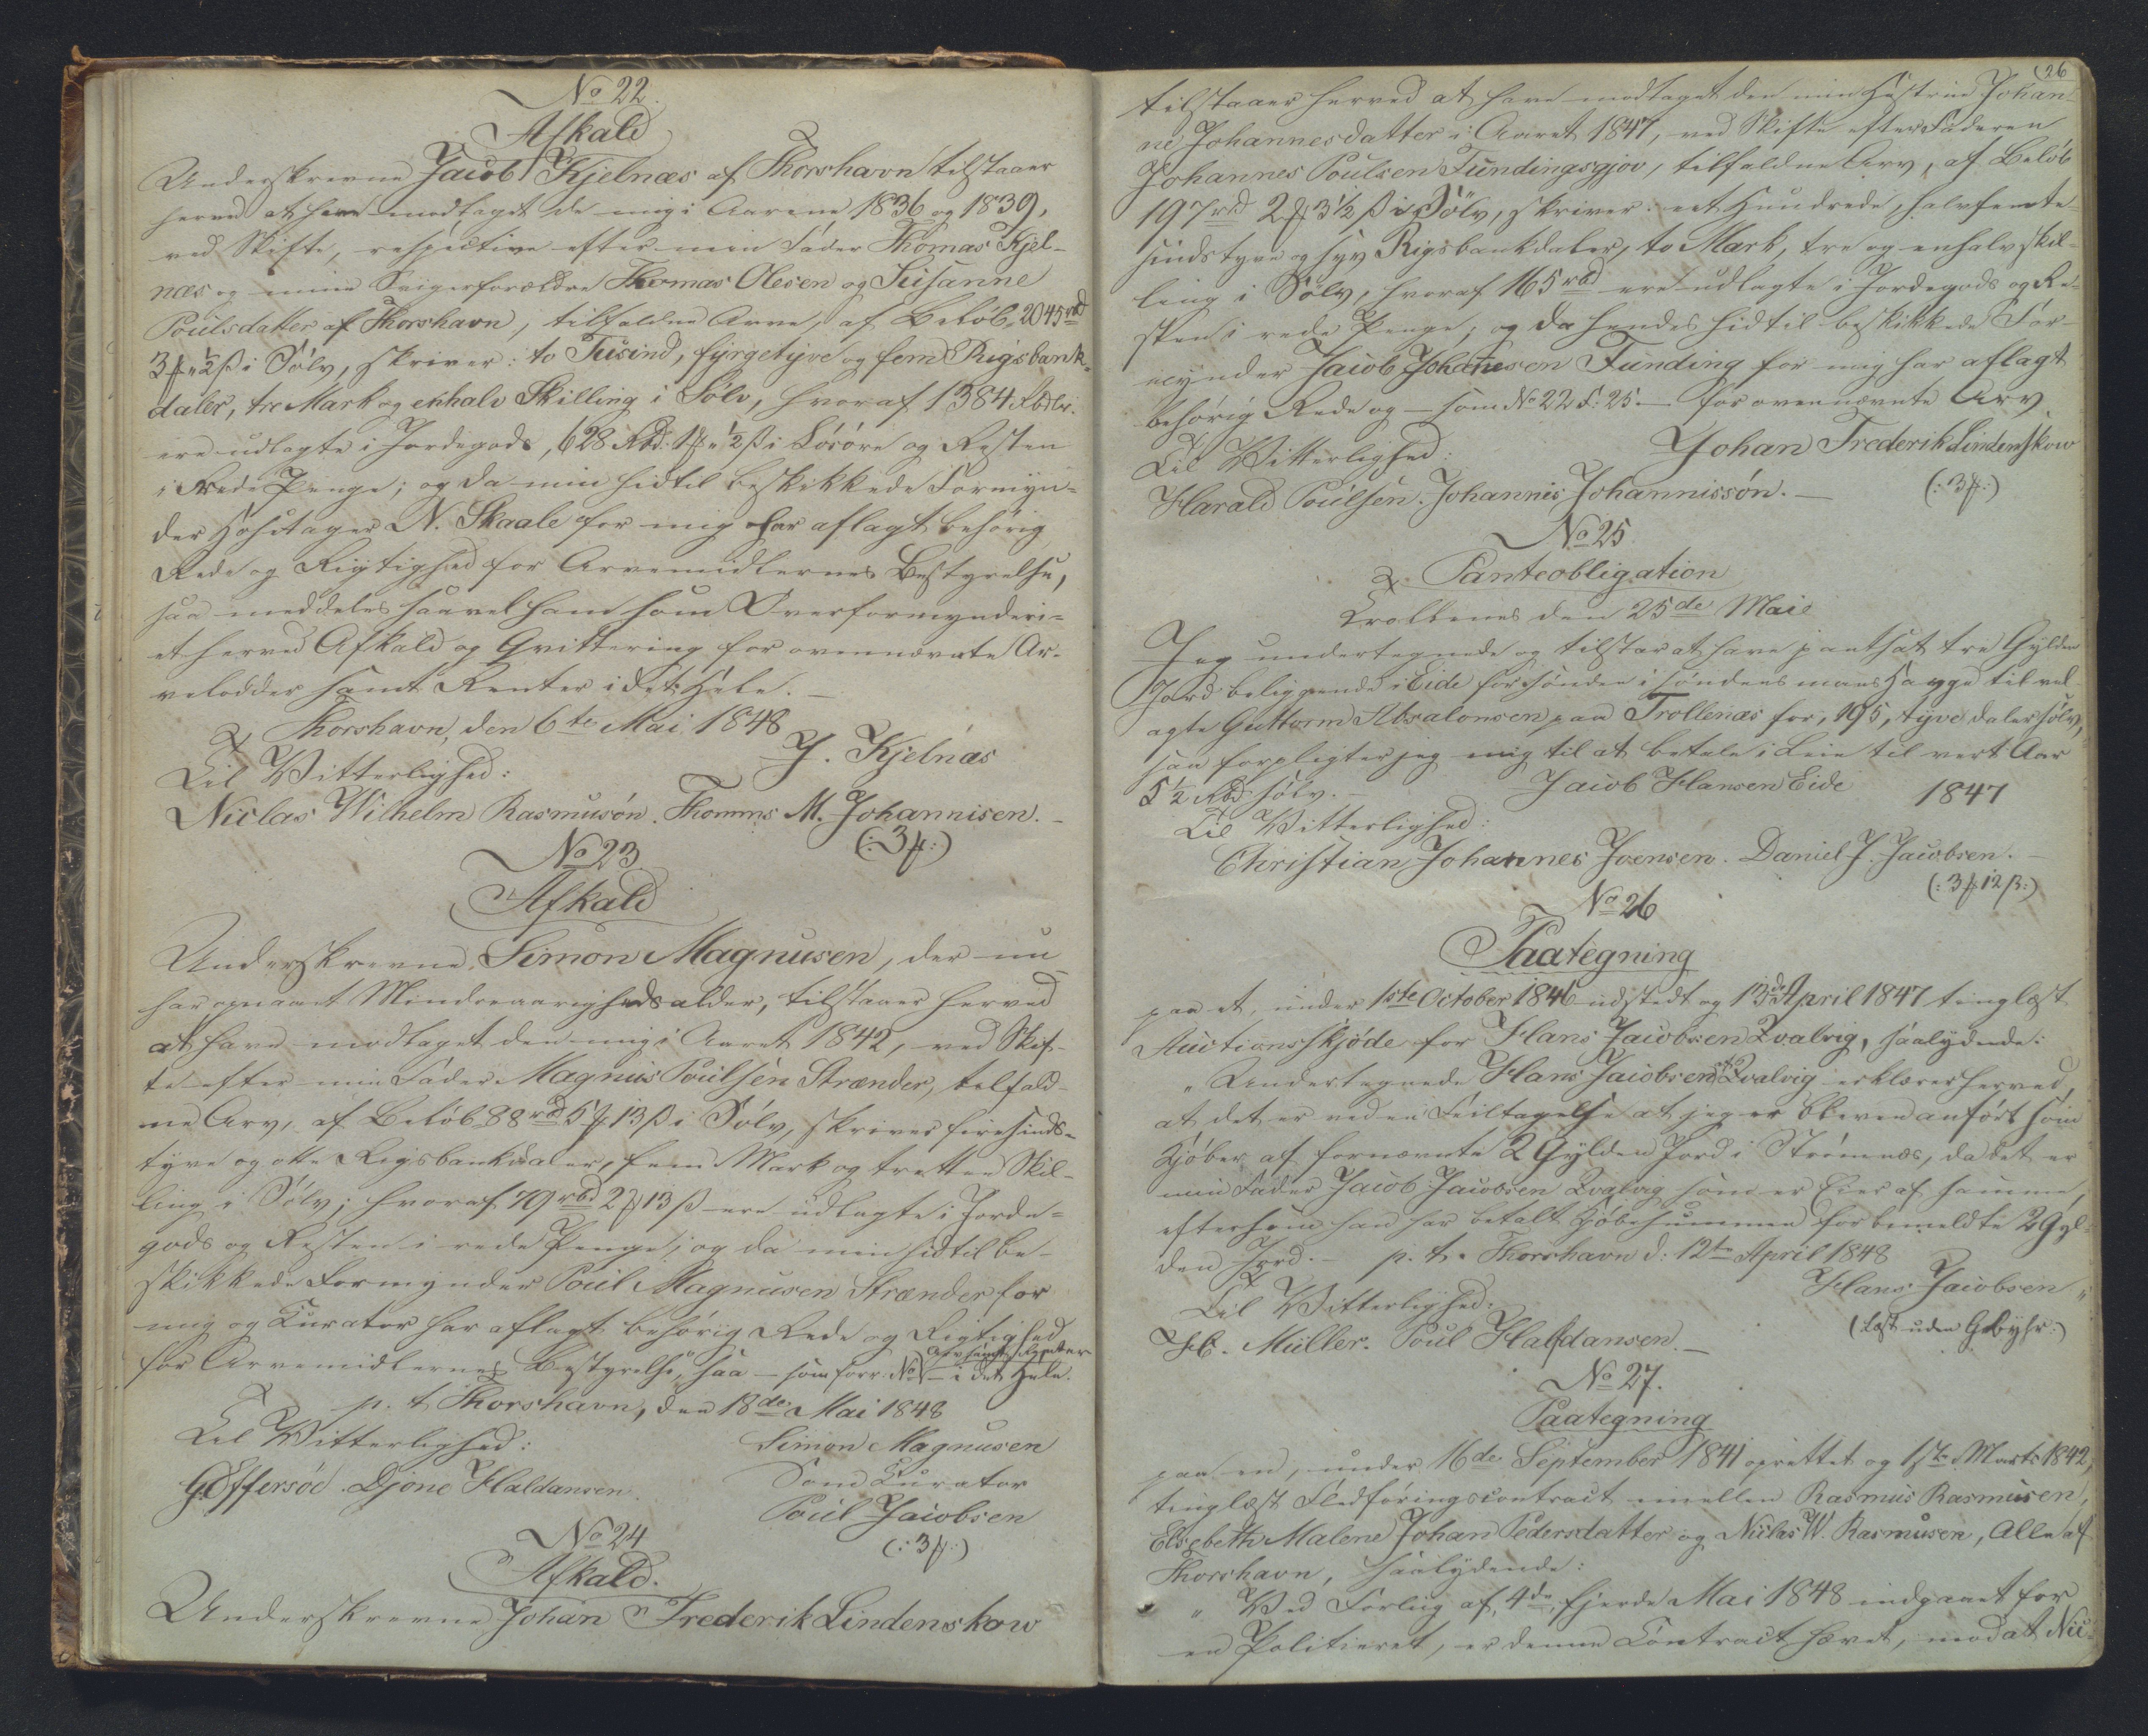 No 22.
Afkald
Underskrevne Jacob Kjelnæs af Thorshavn tilstaaer
herved at have modtaget de mig i Aarene 1836 og 1839,
ved Skifte, respective efter min Fader Thomas Kjel-
næs og mine Svigerforældre Thomas Olesen og Susanne
Poulsdatter af Thorshavn, tilfaldne Arve, af Beløb 2045 rbd
3 ₰ " ½ ß i Sølv, skriver: to Tusind, fyrgetyve og fem Rigsbank-
daler, tre Mark og enhalv Skilling i Sølv, hvoraf 1384 Rbdlr.
ere udlagte i Jordegods, 628 Rbd: 1 ₰ " ½ ß i Løsøre og Resten
i Rede Penge; og da min hidtil beskikkede Formyn-
der N. Skaale for mig har aflagt behørig
Rede og Rigtighed for Arvemidlernes Bestyrelse,
saa meddeles saavel ham som Overformynderi-
et herved Afkald og Qvittering for ovennævnte Ar-
velodder samt Renter i det Hele. —
Thorshavn, den 6te Mai 1848
Til Vitterlighed: J. Kjelnæs
Niclas Wilhelm Rasmusøn. Thomas M. Johannisen. —
(: 3 ₰ :)
No 23
Afkald
Underskrevne Simon Magnusen, der nu
har opnaaet Mindreaarighedsalder, tilstaaer herved
at have modtaget den mig i Aaret 1842, ved Skif-
te efter min Fader Magnus Poulsen Strænder, tilfald-
ne Arv, af Beløb 88 rbd 5 ₰ 13 ß i Sølv, skriver firesinds-
tyve og otte Rigsbankdaler, fem Mark og tretten Skil-
ling i Sølv; hvoraf 79 rbd 2 ₰ 13 ß ere udlagte i Jorde-
gods og Resten i rede Penge; og da min hidtil be-
skikkede Formynder Poul Magnusen Strænder for
mig og Kurator har aflagt behørig Rede og Rigtighed
for Arvemidlernes Bestyrelse, saa — som forr. No Arv samt Renter — i det Hele.
p. t. Thorshavn, den 18de Mai 1848
Til Vitterlighed: Simon Magnusen
G. Effersøe. Djone Haldansen. Som Kurator
Poul Jacobsen
No 24 (: 3 ₰ :)
Afkald.
Underskrevne Johan Frederik Lindenskow
26
tilstaaer herved at have modtaget den min Hustrue Johan-
ne Johannesdatter i Aaret 1847, ved Skifte efter Faderen
Johannes Poulsen Fundingsgjov, tilfaldne Arv, af Beløb
197 rbd 2 ₰ 3½ ß i Sølv, skriver: eet Hundrede, halvfemte-
sindstyve og syv Rigsbankdaler, to Mark, tre og enhalv Skil-
ling i Sølv, hvoraf 165 rbd ere udlagte i Jordegods og Re-
sten i rede Penge; og da hendes hidtil beskikkede For-
mynder Jacob Johannesen Funding for mig har aflagt
behørig Rede og — som No 22 F: 25 — for ovennævnte Arv
Til Vitterlighed: Johan Frederik Lindenskow
Harald Poulsen. Johannis Johannissøn. — (: 3 ₰ :)
No 25.
Panteobligation
Trollenæs den 25de Mai
Jeg undertegnede og tilstaar at have pantsat tre Gylden
Jord beliggende i Eide for sønden i søndens mans Hauge til vel-
agte Guttorm Absalonsen paa Trollenæs for, 195, tyve daler sølv,
saa forpligter jeg mig til at betale i Leie til vert Aar
5½ Rbd sølv. — Jacob Hansen Eide 1847
Til Vitterlighed:
Christian Johannes Joensen. Daniel J. Jacobsen. —
(: 3 ₰ 12 ß :)
No 26
Paategning
paa et, under 1ste October 1846 udstedt og 13de April 1847 tinglæst
Auctionsskjøde for Hans Jacobsen Qvalvig, saalydende:
"Undertegnede Hans Jacobsen af Qvalvig erklærer herved,
at det er ved en Feiltagelse at jeg er bleven anført som
Kjøber af fornævnte 2 Gylden Jord i Strømnæs, da det er
min Fader Jacob Jacobsen Qvalvig som er Eier af samme,
eftersom han har betalt Kjøbesummen for bemeldte 2 Gyl-
den Jord. — p. t. Thorshavn d: 12te April 1848
Til Vitterlighed: Hans Jacobsen "
H. C. Müller. Poul Haldansen. — (Læst uden Gebyhr:)
No 27.
Paategning
paa en, under 16de September 1841 oprettet og 1ste Marts 1842,
tinglæst Fledføringscontract imellem Rasmus Rasmusen,
Elsebeth Malene Johan Pedersdatter og Niclas W. Rasmusen, Alle af
Thorshavn, saalydende:
"Ved Forlig af, 4de, fjerde Mai 1848 indgaaet for
en Politieret, er denne Contract hævet, mod at Nic-